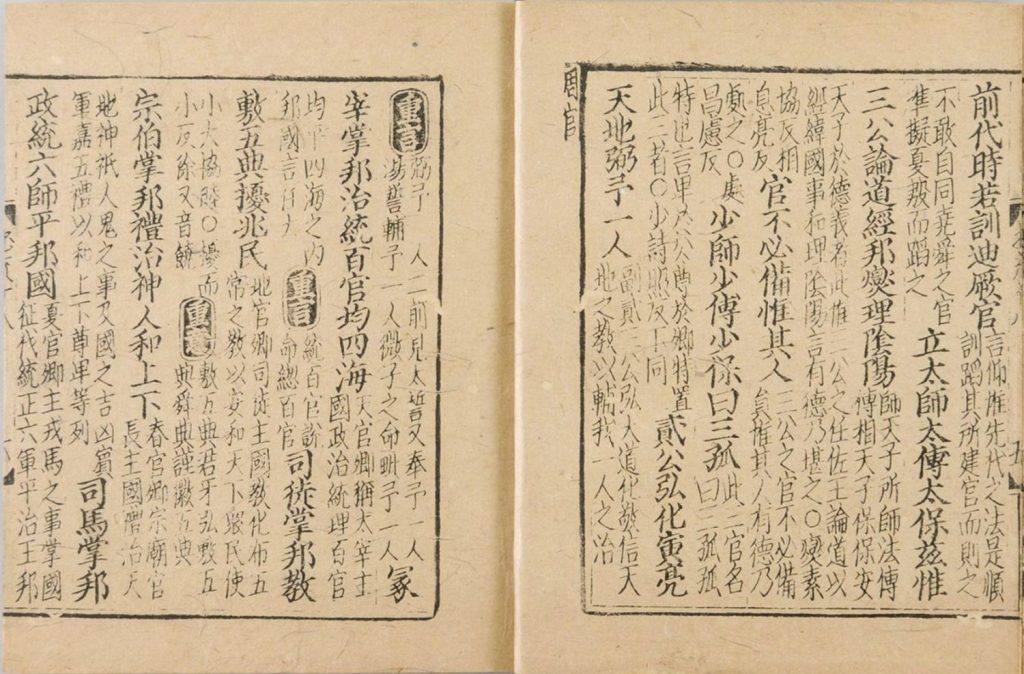 周官
前代時若訓迪厥官
言仰惟先代之法是順
訓蹈其所建官而則之
不敢自同堯舜之官
準擬夏殷而蹈之
立太師太傅太保兹惟
三公論道經邦燮理陰陽
師天子所師法傅
傅相天子保保安
天子於德義者此惟三公之任佐王論道以
經緯國事和理陰陽言有德乃堪之○燮素
協反相
息亮反
官不必備惟其人
三公之官不必備
員惟其人有德乃
處之○處
昌慮反
少師少傅少保曰三孤
此三官名
曰三孤孤
特也言卑於公尊於卿特置
此三者○少詩照反下同
貳公弘化寅亮
天地弼予一人
副貳三公弘大道化敬信天
地之教以輔我一人之治
重言
弼予一人二前見太誓又奉予一人
湯誓輔予一人微子之命毗予一人
冢
宰掌邦治統百官均四海
天官卿稱太宰主
國政治統理百官
均平四海之内
邦國言任大
重言
統百官說
命總百官
司徒掌邦教
敷五典擾兆民
地官卿司徒主國教化布五
常之教以安和天下衆民使
小大協睦○擾而
小反徐又音饒
重意
敷五典君牙弘敷五
典舜典謹徽五典
宗伯掌邦禮治神人和上下
春官卿宗廟官
長主國禮治天
地神祇人鬼之事及國之吉凶賓
軍嘉五禮以和上下尊卑等列
司馬掌邦
政統六師平邦國
夏官卿主戎馬之事掌國
征伐統正六軍平治王邦